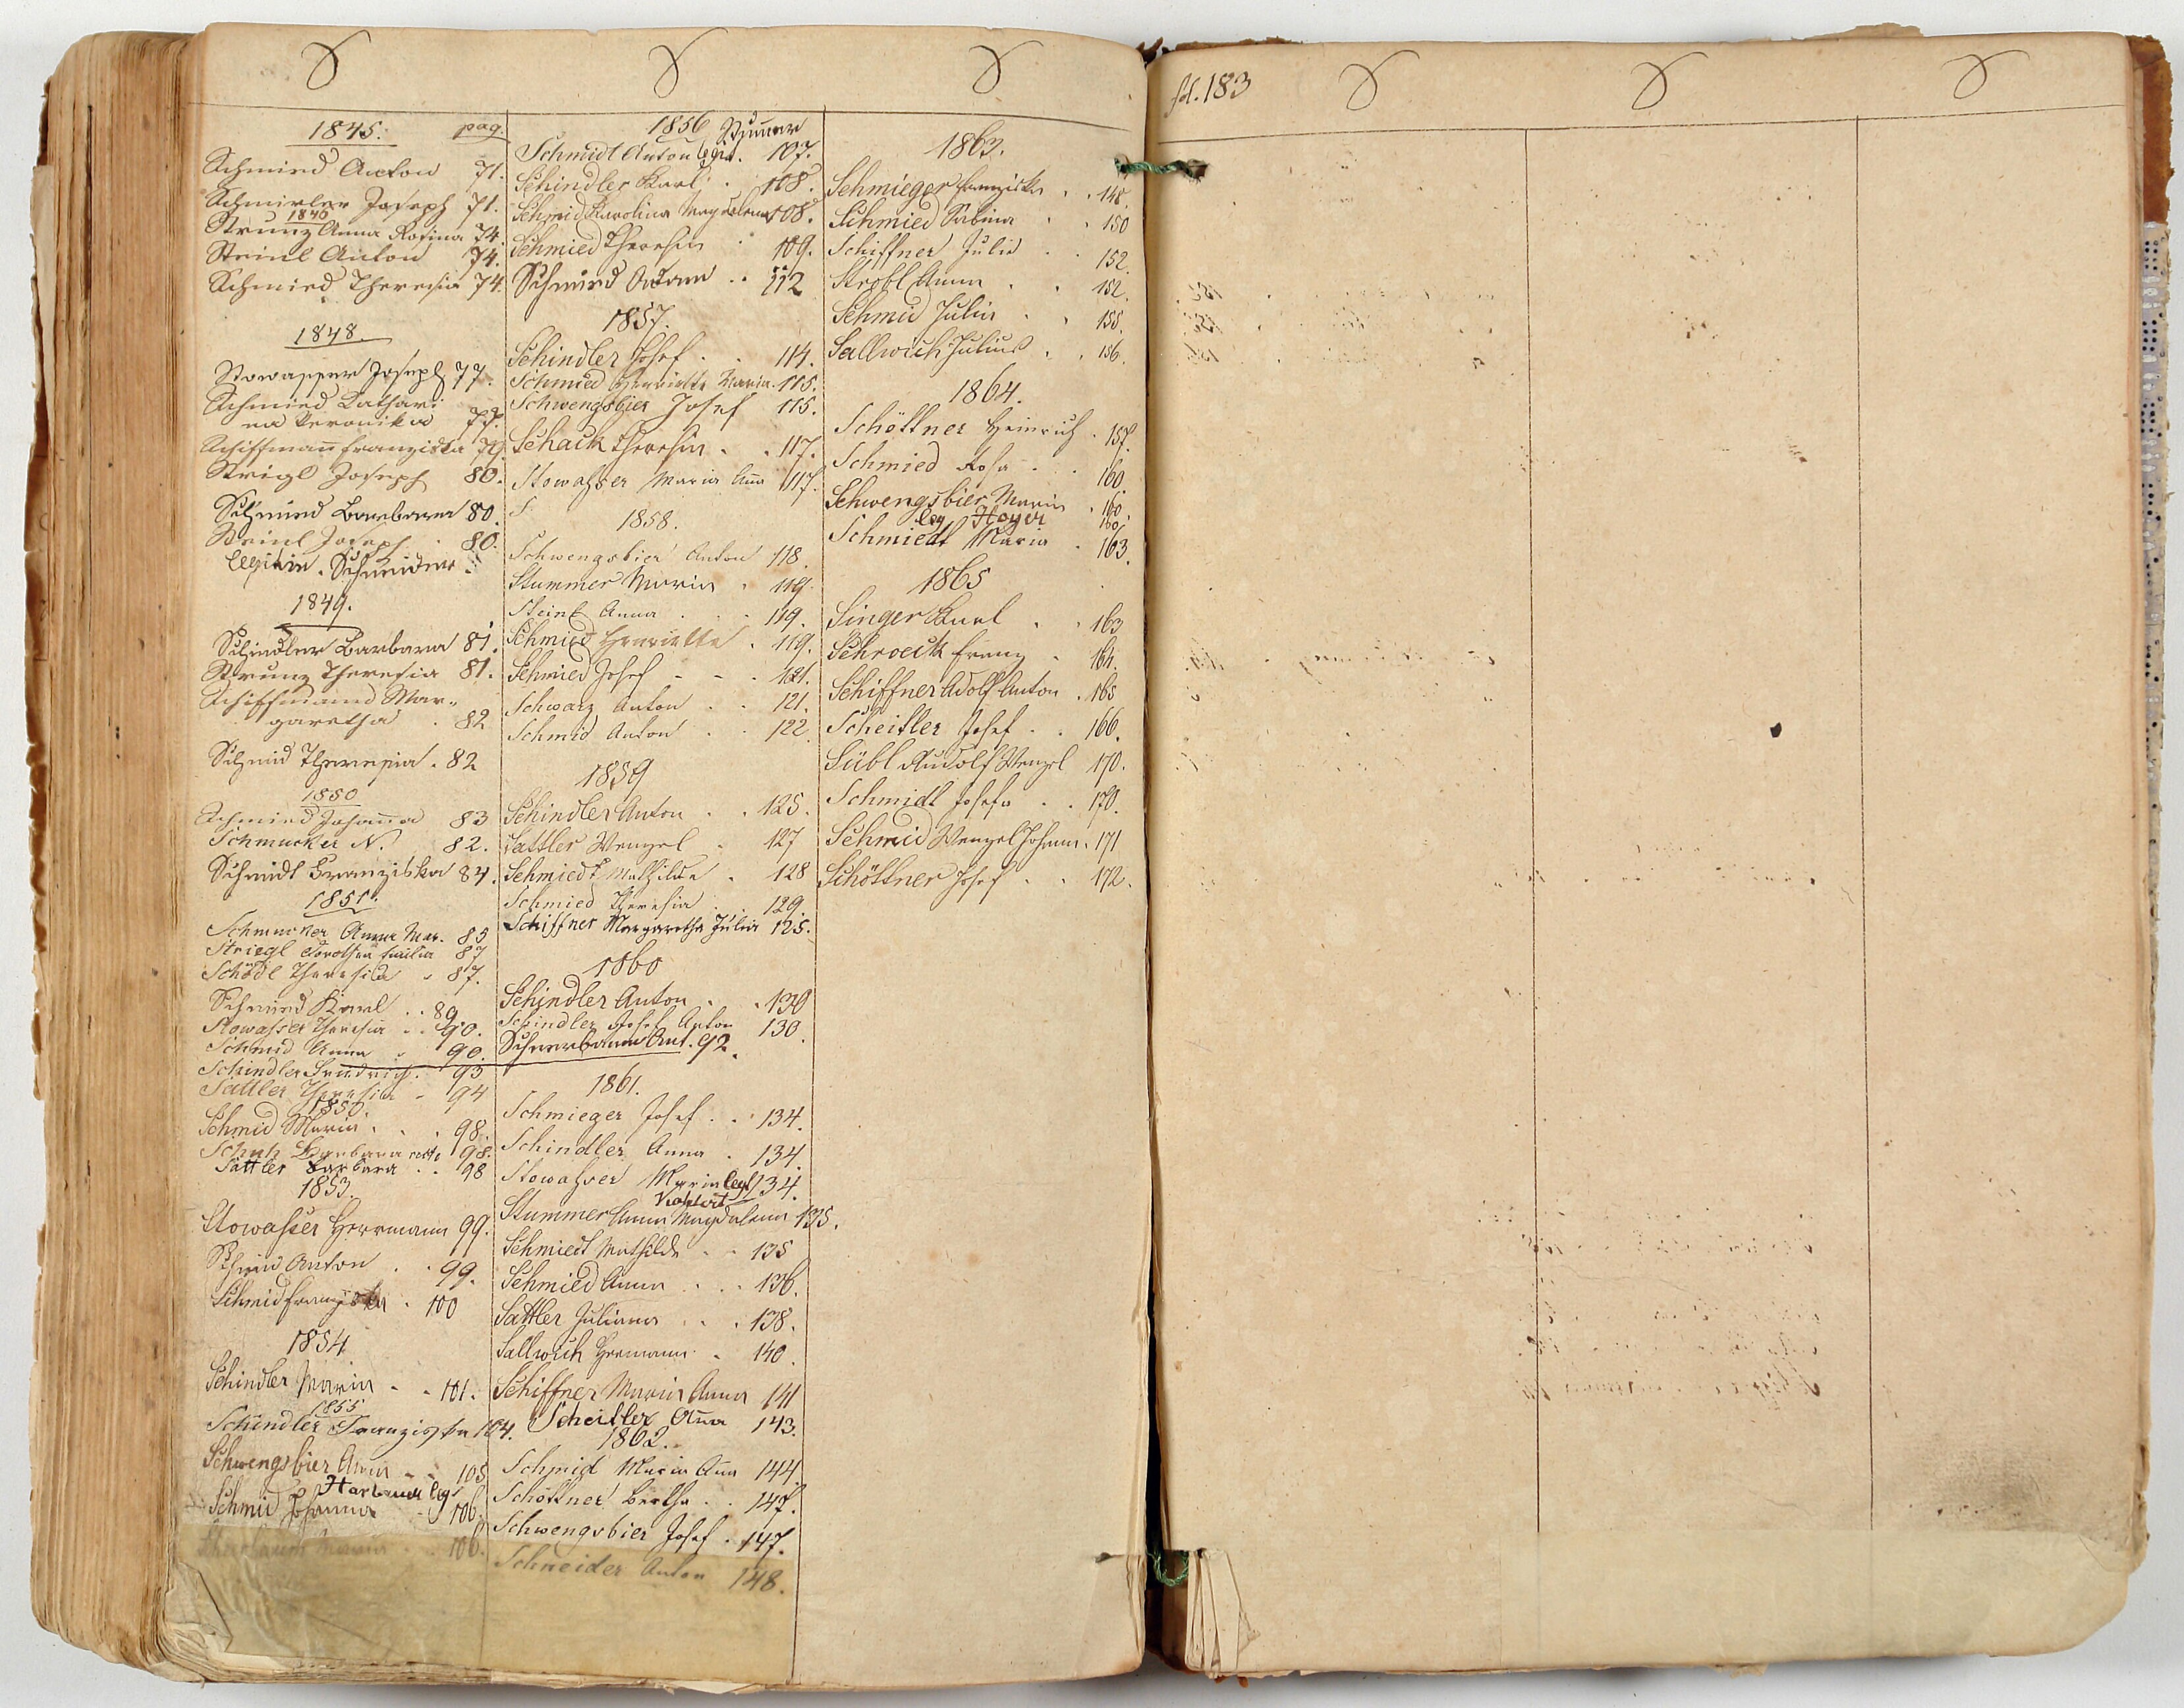 S S S
1845. pag.
Schmied Anton 71.
Schmirler Joseph 71.
1846
Strunz Anna Rosina 74.
Steinl Anton 74.
Schmied Theresia 74.
1848.
Stowasser Joseph 77.
Schmied Kathari
na Veronika 77.
Schiffmañ Franziska 79.
Strigl Joseph 80.
Schmied Barbara 80.
Steinl Joseph 80.
Schneider
1849.
Schindler Barbara 81.
Strunz Theresia 81.
Schiffmann Mar-
garetha 82
Schmid Theresia . 82
1850
Schmied Johaña 83
Schmucker N. 82.
Schmidt Franziska 84.
1851.
Schmucker Anna Mar. 85
Striegl Dorothea Emilia 87
Schödl Theresia 87.
Schmied Karl . . 89
Stowasser Theresia . . 90.
Schmid Anna 90.
Schindler Friedrich . 93
Sattler Theresia - 94
Schmid Maria . . . 98.
Schuh Barbara 98.
Sattler Barbara . . 98
1853.
Stowasser Herrmann 99.
Schmid Anton . . 99.
Schmid Franziska . 100
1854
Schindler Maria - - 101.
1855
Schindler Franziska 104.
Schwengsbier Anna - - 105
leg
Schmid Johanna - 106.
Maria . . 106.
1856
Schmidt Anton legit. 107.
Schindler Karl . 108.
Schmid Karolina Magdalena 108.
Schmied Theresia . 109.
Schmied Anton . . 112
1857.
Schindler Josef . . 114.
Schmied Henriette Maria . 115.
Schwengsbier Josef 115.
Schack Theresia . . 117.
Stowasser Maria Aña 117.
S
1858.
Schwengsbier Anton 118.
Stummer Maria . 119.
Steinl Anna . . . 119.
Schmied Henriette . 119.
Schmied Josef - - . 121.
Schwarz Anton . . 121.
Schmid Anton . . 122.
1859
Schindler Anton . . 125.
Sattler Wenzel . 127
Schmiedt Mathilde . 128
Schmied Theresia . . 129
Schiffner Margaretha Julia 125.
1860
Schindler Anton . . 130
Schindler Josef Anton 130.
Scheerbaum Ant. 92.
1861.
Schmieger Josef . . 134.
Schindler Anna . 134.
Stowasser Maria legt 134.
Stummer Anna Magdalena 135.
Schmiedt Mathilde - - 135
Schmied Anna . . . 136.
Sattler Juliana . . . 138.
Sallwich Hermann . 140.
Schiffner Maria Anna 141
Scheitler Aña 143.
1862.
Schmid Maria Aña 144.
Schöttner Bertha . . 147.
Schwengsbier Josef . 147.
Schneider Anton 148.
1863.
Schmieger Franziska . . 148.
Schmied Sabina . . 150
Schiffner Julie . . 152.
Strobl Anna . . 152.
Schmid Julia . . 155.
Sallwich Julius . . 156.
1864.
Schöttner Heinrich . 157.
Schmied Rosa . . 160
Schwengsbier Maria . 160.
leg Hoyer 160
Schmiedt Maria . 163.
1865
Singer Karl . . 163
Schroeck Franz . 164.
Schiffner Adolf Anton . 165
Scheitler Josef . . 166.
Sübl Rudolf Wenzel 170.
Schmidt Josefa . . 170.
Schmid Wenzel Johann . 171
Schöttner Josef . . 172.
fol. 183 S S S